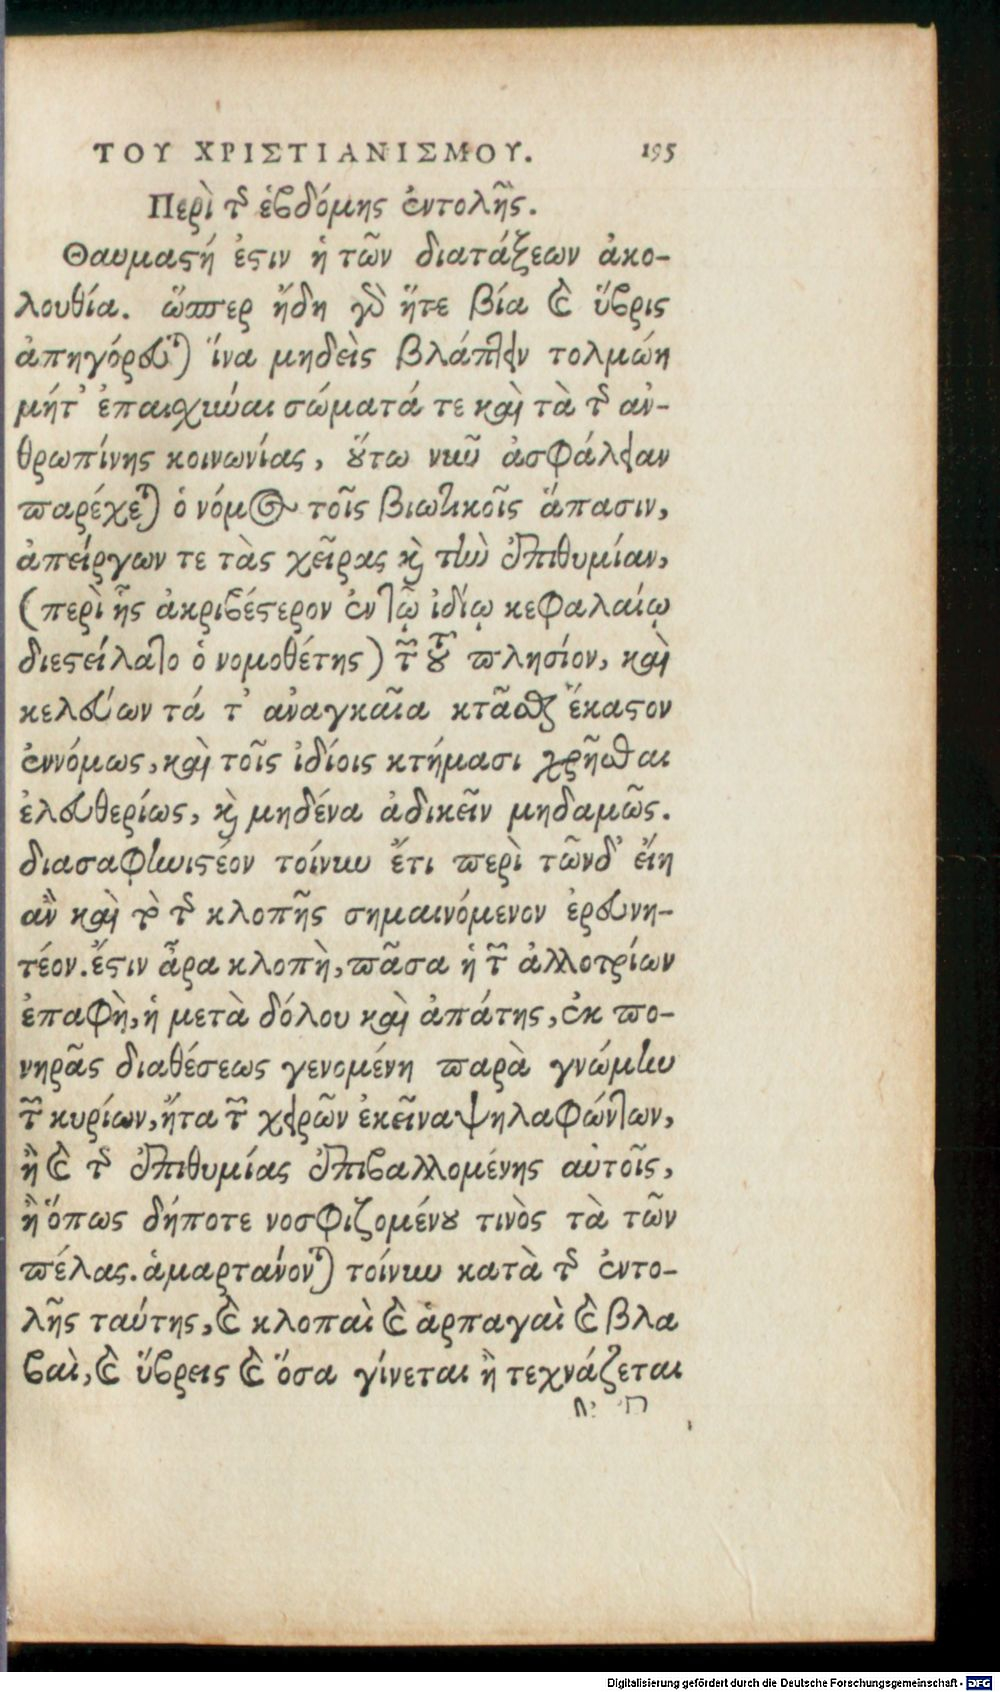 ΤΟΥ ΧΡΙΣΤΙΑΝΙΣΜΟΥ. 195
Περὶ τῆς ἑβδόμης ἐντολῆς.
Θαυμαστή ἐστιν ἡ τῶν διατάξεων ἀκο-
λουθία. ὥσπερ ἤδη γὰρ ἥτε βία καὶ ὕβρις
ἀπηγόρευται ἵνα μηδεὶς βλάπτειν τολμώη
μήτ' ἐπαισχύναι σώματά τε καὶ τὰ τῆς ἀν-
θρωπίνης κοινωνίας, οὕτω νῦν ἀσφάλειαν
παρέχεται ὁ νόμος τοῖς βιωτικοῖς ἅπασιν,
ἀπείργων τε τὰς χεῖρας καὶ τὴν ἐπιθυμίαν,
(περὶ ἧς ἀκριβέστερον ἐν τῷ ἰδίῳ κεφαλαίῳ
διεστείλατο ὁ νομοθέτης) τῶν τοῦ πλησίον, καὶ
κελεύων τά τ' ἀναγκαῖα κτᾶσθαι ἕκαστον
ἐννόμως, καὶ τοῖς ἰδίοις κτήμασι χρῆσθαι
ἐλευθερίως, καὶ μηδένα ἀδικεῖν μηδαμῶς.
διασαφηνιστέον τοίνυν ἔτι περὶ τῶνδ' εἴη
ἂν καὶ τὸ τῆς κλοπῆς σημαινόμενον ἐρευνη-
τέον. ἔστιν ἆρα κλοπὴ, πᾶσα ἡ τῶν ἀλλοτρίων
ἐπαφὴ, ἡ μετὰ δόλου καὶ ἀπάτης, ἐκ πο-
νηρᾶς διαθέσεως γενομένη παρὰ γνώμην
τῶν κυρίων, ἤτα τῶν χειρῶν ἐκεῖνα ψηλαφώντων,
ἢ καὶ τῆς ἐπιθυμίας ἐπιβαλλομένης αὐτοῖς,
ἢ ὅπως δήποτε νοσφιζομένου τινὸς τὰ τῶν
πέλας. ἁμαρτάνονται τοίνυν κατὰ τῆς ἐντο-
λῆς ταύτης, καὶ κλοπαὶ καὶ ἁρπαγαὶ καὶ βλα
βαὶ, καὶ ὕβρεις καὶ ὅσα γίνεται ἢ τεχνάζεται
Digitalisierung gefördert durch die Deutsche Forschungsgemeinschaft - DFG